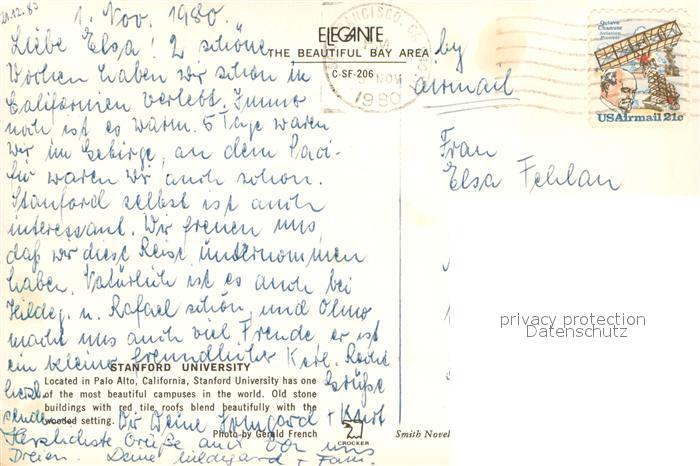 20.12.80
1. Nov. 1980.
Liebe Elsa! 2 schöne
Wochen haben wir schon in
Californien verlebt. Immer
noch ist es warm. 5 Tage waren
wir im Gebirge, an dem Paci-
fic waren wir auch schon.
Stanford selbst ist auch
interessant. Wir freuen uns,
daß wir diese Reise unternommen
haben. Natürlich ist es auch bei
Hildeg. u. Rafael schön, und Olmo
macht uns auch viel Freude, er ist
ein kleiner freundlicher Kerl. Recht
herzl. Grüße
senden Dir Deine Irmgard + Kurt
Herzlichste Grüße auch von uns
Dreien. Deine Hildegard + Fam.
ELEGANTE
THE BEAUTIFUL BAY AREA
C-SF-206
STANFORD UNIVERSITY
Located in Palo Alto, California, Stanford University has one
of the most beautiful campuses in the world. Old stone
buildings with red tile roofs blend beautifully with the
wooded setting.
Photo by Gerald French
CROCKER
Smith Novel
FRANCISCO, CA
NOV
1980
by
airmail
Octave
Chanute
Aviation
Pioneer
USAirmail 21c
Frau
Elsa Fehlau
privacy protection
Datenschutz